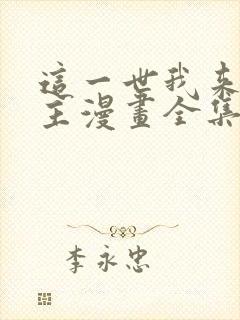 這一世我来
主漫畫全集
李永忠